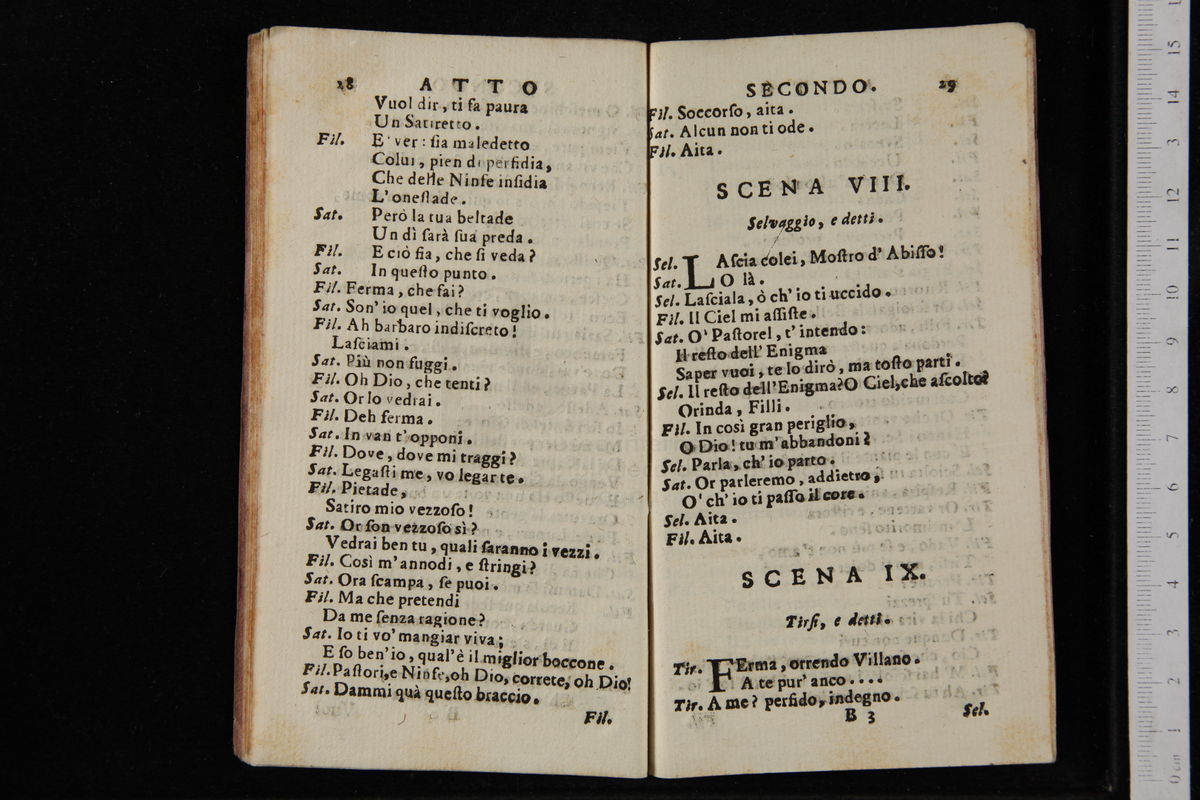 28 ATTO
Vuol dir, ti fa paura
Un Satiretto.
Fil. E' ver: ſia maledetto
Colui, pien di perfidia,
Che delle Ninfe inſidia
L'oneſtade.
Sat. Però la tua beltade
Un dì ſarà ſua preda.
Fil. E ciò fia, che ſi veda?
Sat. In queſto punto.
Fil. Ferma, che fai?
Sat. Son' io quel, che ti voglio.
Fil. Ah barbaro indiſcreto!
Laſciami.
Sat. Più non fuggi.
Fil. Oh Dio, che tenti?
Sat. Or lo vedrai.
Fil. Deh ferma.
Sat. In van t'opponi.
Fil. Dove, dove mi traggi?
Sat. Legaſti me, vo legar te.
Fil. Pietade,
Satiro mio vezzoſo!
Sat. Or ſon vezzoſo sì?
Vedrai ben tu, quali ſaranno i vezzi.
Fil. Così m'annodi, e ſtringi?
Sat. Ora ſcampa, ſe puoi.
Fil. Ma che pretendi
Da me ſenza ragione?
Sat. Io ti vo' mangiar viva;
E ſo ben'io, qual'è il miglior boccone.
Fil. Paſtori, e Ninfe, oh Dio, correte, oh Dio!
Sat. Dammi quà queſto braccio.
Fil.
SECONDO. 29
Fil. Soccorſo, aita.
Sat. Alcun non ti ode.
Fil. Aita.
SCENA VIII.
Selvaggio, e detti.
Sel. LAſcia colei, Moſtro d'Abiſſo!
Sat. O là.
Sel. Laſciala, ò ch'io ti uccido.
Fil. Il Ciel mi aſſiſte.
Sat. O' Paſtorel, t'intendo:
Il reſto dell'Enigma
Saper vuoi, te lo dirò, ma toſto parti.
Sel. Il reſto dell'Enigma? O Ciel, che aſcolto?
Orinda, Filli.
Fil. In così gran periglio,
O Dio! tu m'abbandoni?
Sel. Parla, ch'io parto.
Sat. Or parleremo, addietro,
O' ch'io ti paſſo il core.
Sel. Aita.
Fil. Aita.
SCENA IX.
Tirſi, e detti.
Tir. FErma, orrendo Villano.
A te pur'anco....
Tir. A me? perfido, indegno.
B 3 Sel.